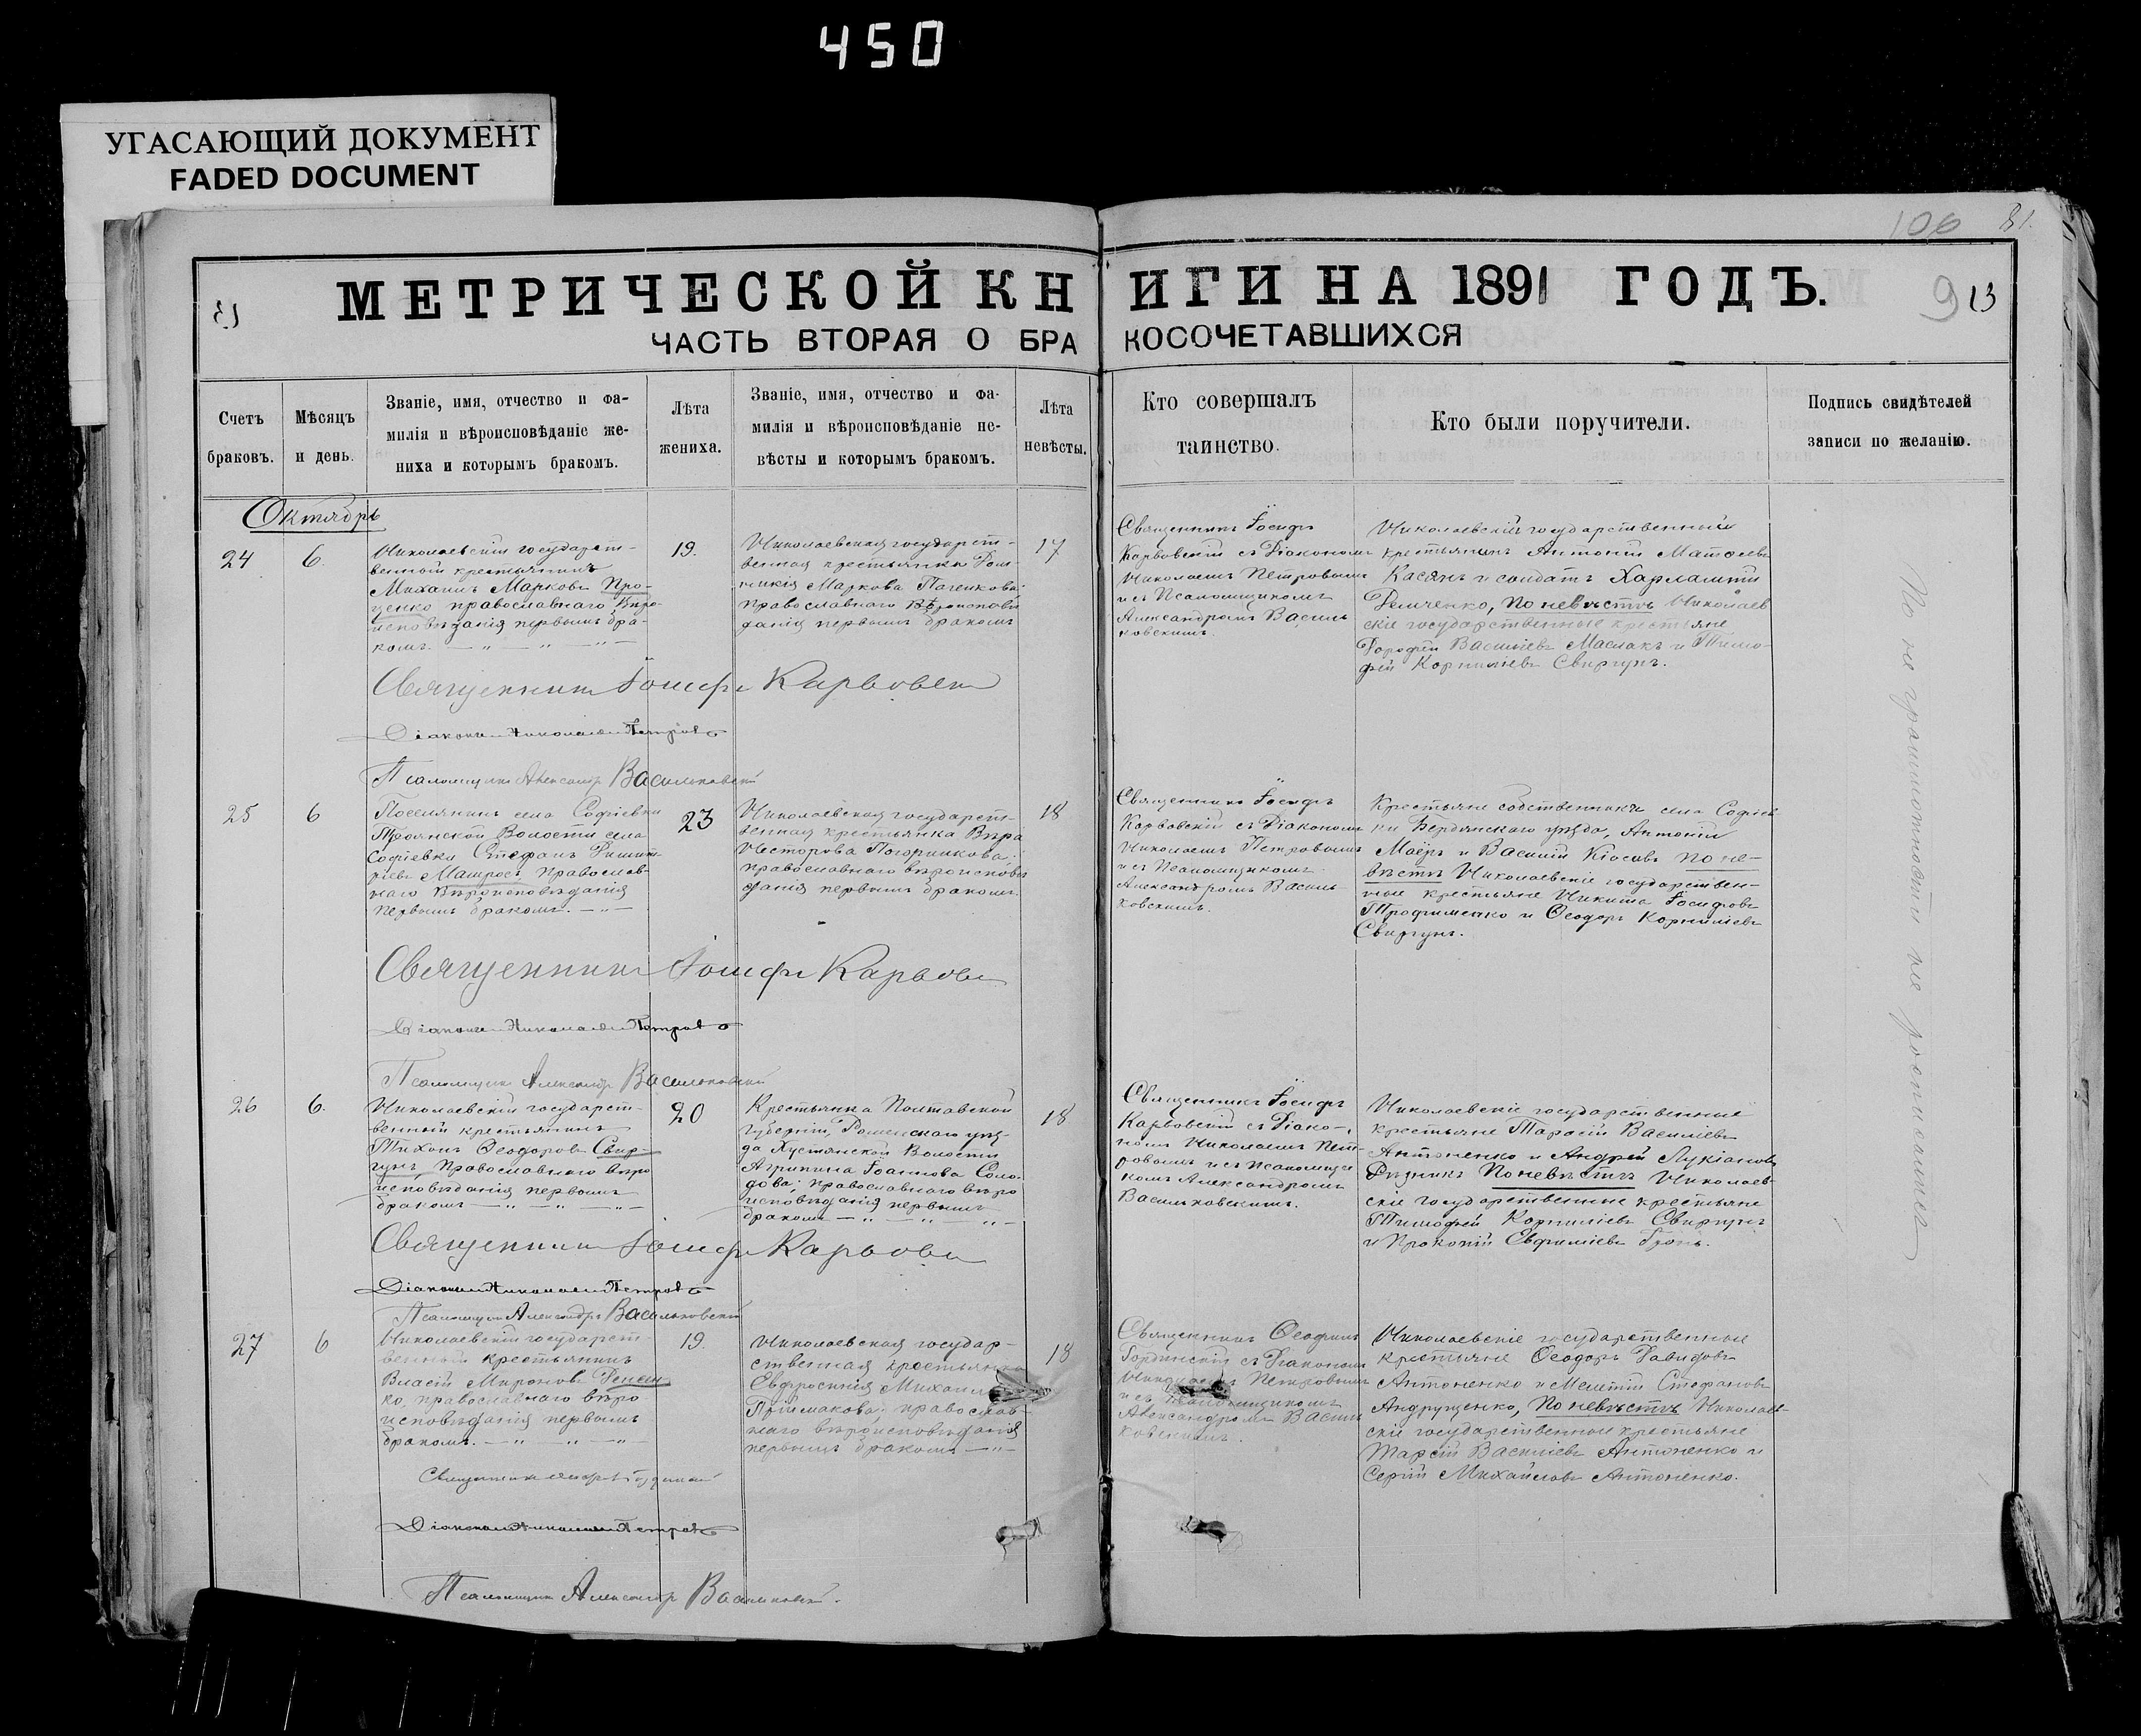 450
УГАСАЮЩИЙ ДОКУМЕНТ
FADED DOCUMENT
106 81.
МЕТРИЧЕСКОЙ КН ИГИ НА 1891 ГОДЪ.
9 13
ЧАСТЬ ВТОРАЯ О БРА КОСОЧЕТАВШИХСЯ
Счетъ браковъ.
Мѣсяцъ и день.
Званіе, имя, отчество и фа-
милія и вѣроисповѣданіе же-
ниха и которымъ бракомъ.
Лѣта жениха.
Званіе, имя, отчество и фа-
милія и вѣроисповѣданіе не-
вѣсты и которымъ бракомъ.
Лѣта невѣсты.
Кто совершалъ
таинство.
Кто были поручители.
Подпись свидѣтелей
записи по желанію.
Октябрь
24
6.
Николаевскій государст-
венный крестьянинъ
Михаилъ Марковъ Про-
ценко православнаго вѣро-
исповѣданія первымъ бра-
комъ.
19.
Николаевская государст-
венная крестьянка
Маркова
православнаго вѣроисповѣ
данія первымъ бракомъ
17
Священникъ Іосифъ
Карвовскій съ Діакономъ
Николаемъ Петровымъ
и съ Псаломщикомъ
Александромъ Василь
ковскимъ.
Николаевскій государственный
крестьянинъ Антоній Матѳеевъ
Касянъ и солдатъ Харлампій
Демченко, по невѣстѣ Николаев
скіе государственные крестьяне
Дорофей Василіевъ Маслакъ и Тимо-
фей Корниліевъ Свиргунъ.
Священникъ Іосифъ Карвовскій
Діаконъ Николай Петровъ
Псаломщикъ Александръ Васильковскій
25
6
Поселянинъ села Софіевки
Троянской Волости села
Софіевки Стефанъ Димит-
ріевъ православ-
наго вѣроисповѣданія
первымъ бракомъ.
23
Николаевская государст-
венная крестьянка Вѣра
Несторова
православнаго вѣроисповѣ
данія первымъ бракомъ.
18
Священникъ Іосифъ
Карвовскій съ Діакономъ
Николаемъ Петровымъ
и съ Псаломщикомъ
Александромъ Василь-
ковскимъ.
Крестьяне собственники села Софіев-
ки Бердянскаго уѣзда, Антоній
и Василій Кіосовъ по не-
вѣстѣ Николаевскіе государствен-
ные крестьяне Никита Іосифовъ
Трофименко и Ѳеодоръ Корниліевъ
Свиргунъ.
Священникъ Іосифъ Карвовскій
Діаконъ Николай Петровъ
Псаломщикъ Александръ Васильковскій
26
6.
Николаевскій государст-
венный крестьянинъ
Тихонъ Ѳеодоровъ Свир-
гунъ православнаго вѣро
исповѣданія первымъ
бракомъ
20
Крестьянка Полтавской
губерніи, Роменскаго уѣз-
да Хустянской Волости
Агрипина Іоаннова Соло-
дова; православнаго вѣро
исповѣданія первымъ
бракомъ
18
Священникъ Іосифъ
Карвовскій съ Діако-
номъ Николаемъ Пет-
ровымъ и съ Псаломщи
комъ Александромъ
Васильковскимъ.
Николаевскіе государственные
крестьяне Тарасій Василіевъ
Антоненко и Андрей Лукіановъ
Рѣзникъ по невѣстѣ Николаев-
скіе государственные крестьяне
Тимофей Корниліевъ Свиргунъ
и Прокопій Евфиміевъ
Священникъ Іосифъ Карвовскій
Діаконъ Николай Петровъ
Псаломщикъ Александръ Васильковскій
27
6
Николаевскій государст-
венный крестьянинъ
Власій Мироновъ
ко, православнаго вѣро
исповѣданія первымъ
бракомъ.
19.
Николаевская государ-
ственная крестьянка
Евфросинія Михаил
Приймакова; православ-
наго вѣроисповѣданія
первымъ бракомъ
18
Священникъ Ѳеофилъ
съ Діакономъ
Николаемъ Петровымъ
и съ Псаломщикомъ
Александромъ Василь
ковскимъ.
Николаевскіе государственные
крестьяне Ѳеодоръ Давидовъ
Антоненко и Мелетій Стефановъ
Андрущенко, по невѣстѣ Николаев-
скіе государственные крестьяне
Тарасій Василіевъ Антоненко и
Сергій Михайловъ Антоненко.
Священникъ
Діаконъ Николай Петровъ
Псаломщикъ Александръ Васильковскій.
По не грамотности не росписались